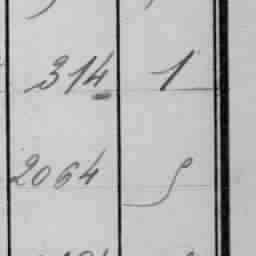 314 1
2064